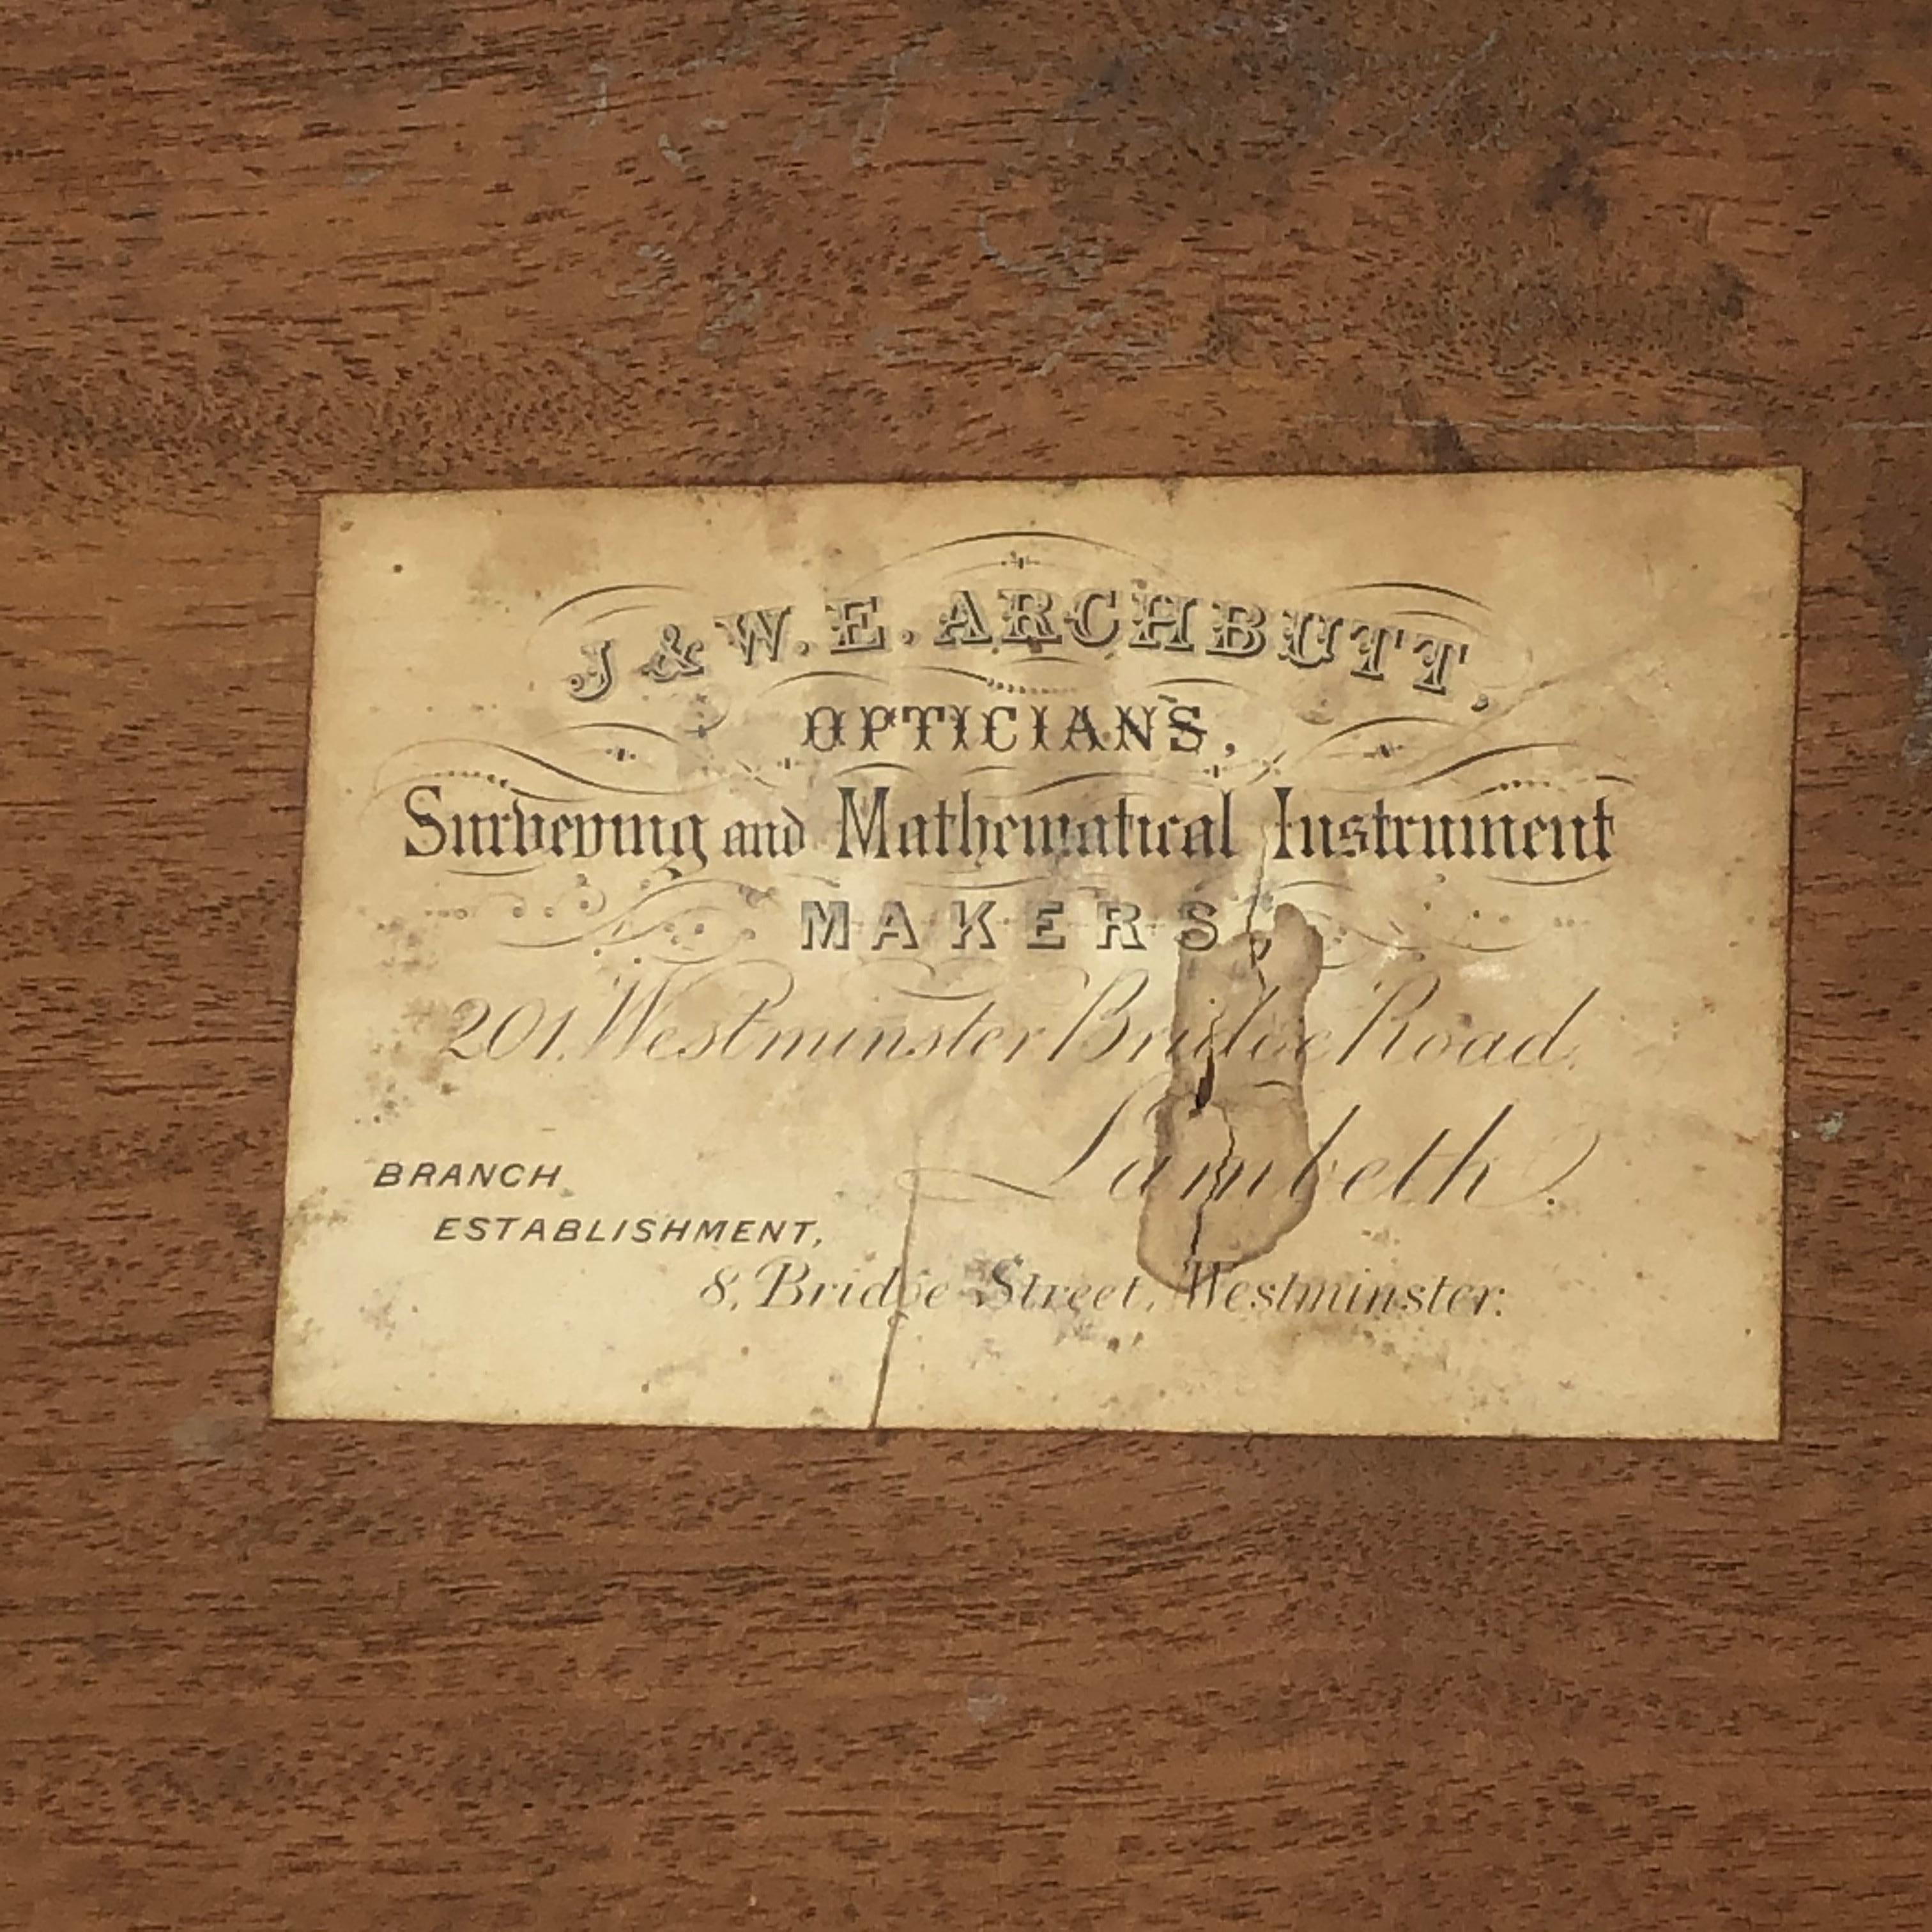 J & W. E. ARCHBUTT,
OPTICIANS,
Surveying and Mathematical Instrument
MAKERS,
201, Westminster Bridge Road,
Lambeth.
BRANCH
ESTABLISHMENT,
8, Bridge Street, Westminster.